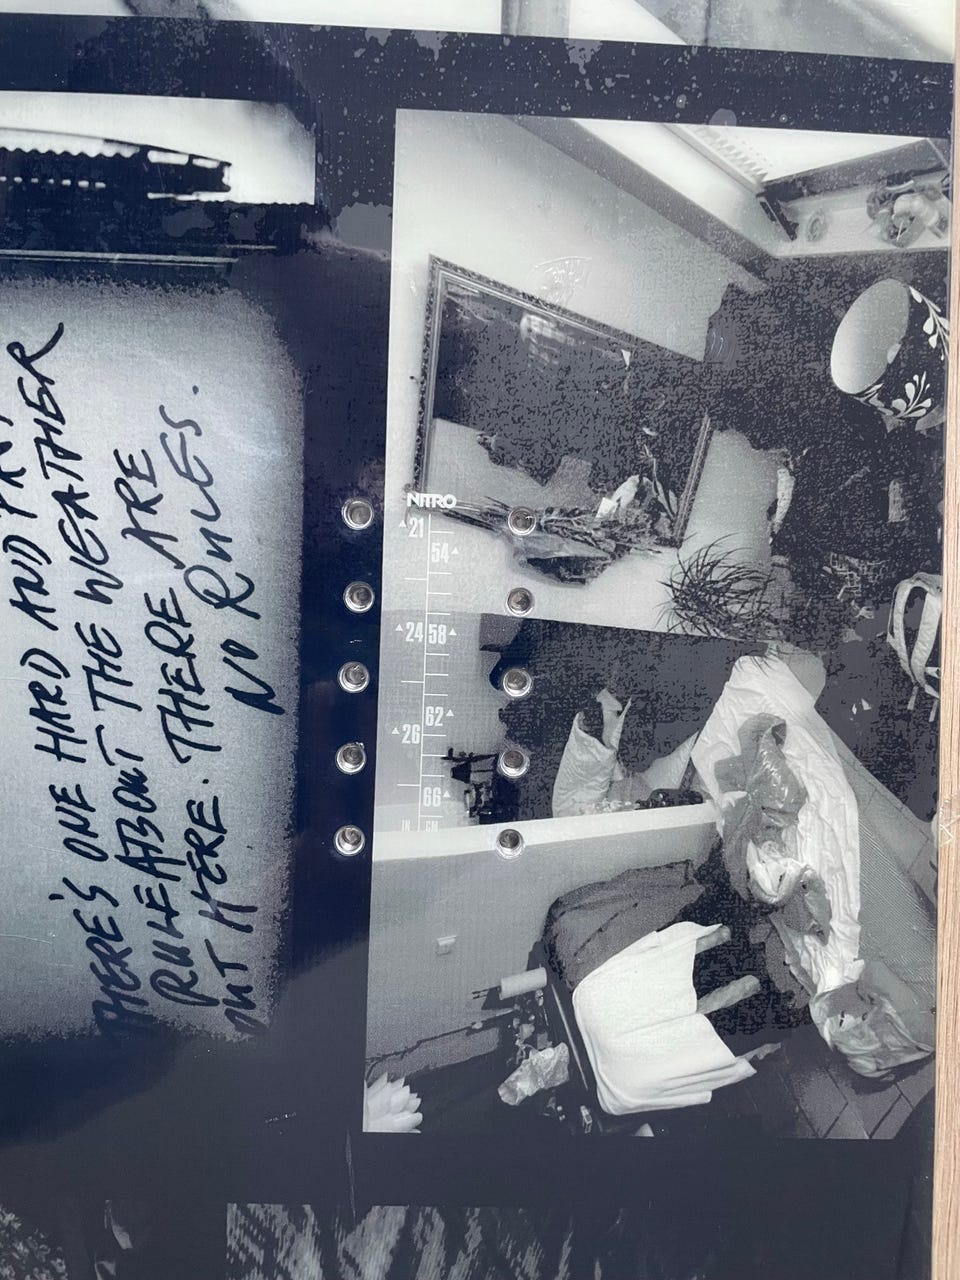 THERE'S ONE HARD AND FAST
RULE ABOUT THE WEATHER
OUT HERE. THERE ARE
NO RULES.
NITRO
21
54
24 58
62
26
66
IN CM